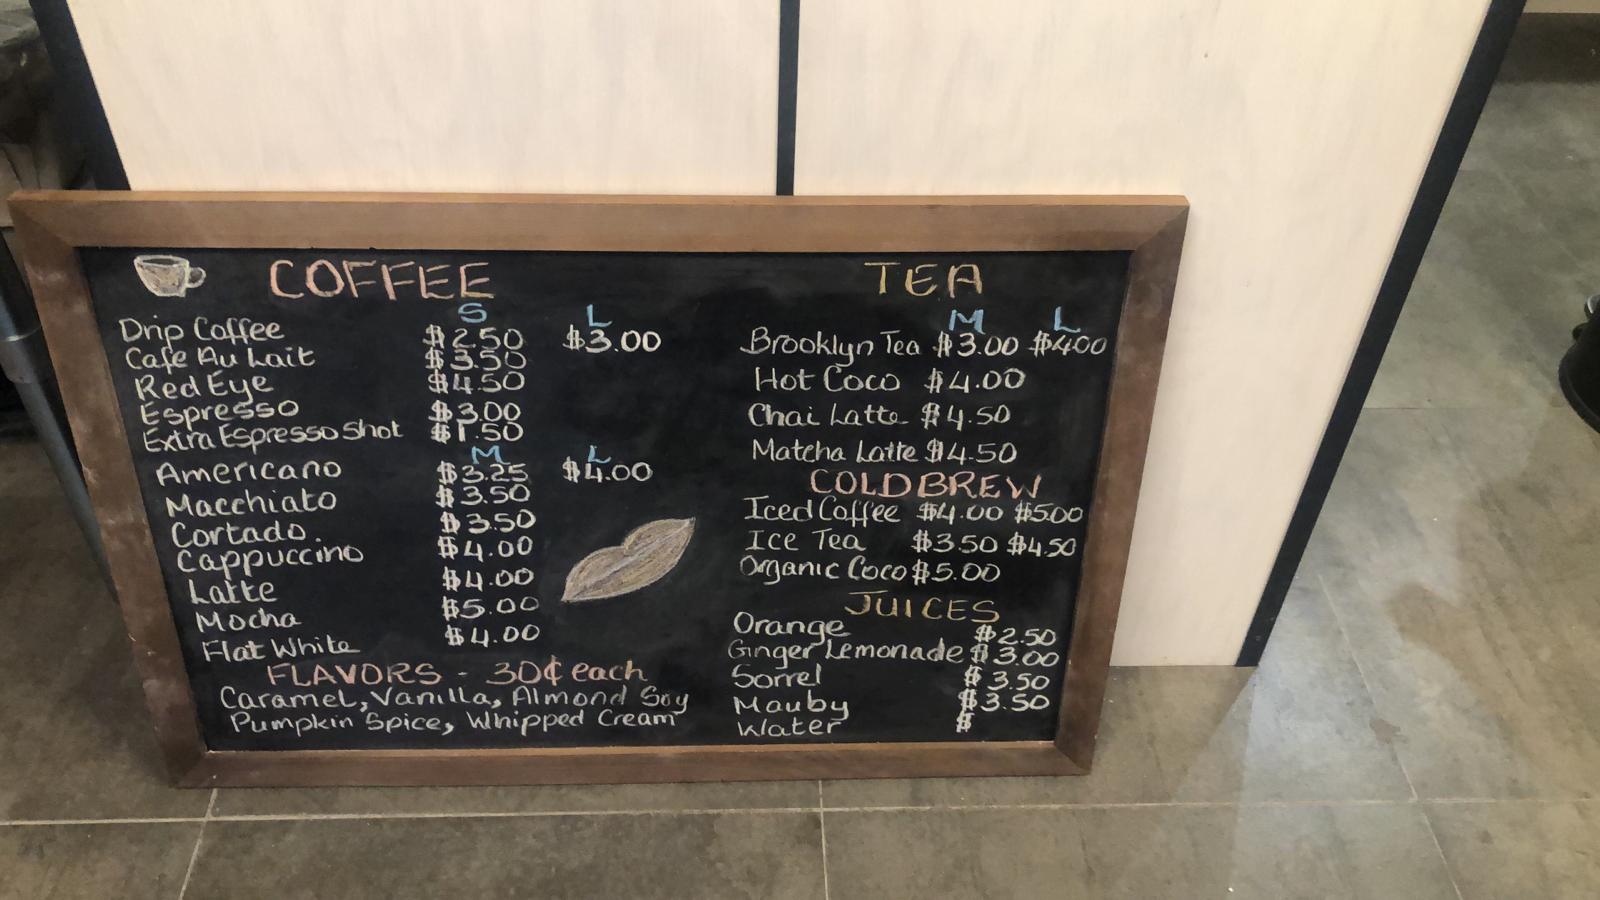 COFFEE
S L
Drip Coffee $2.50 $3.00
Cafe Au Lait $3.50
Red Eye $4.50
Espresso $3.00
Extra Espresso Shot $1.50
M L
Americano $3.25 $4.00
Macchiato $3.50
Cortado. $3.50
Cappuccino $4.00
Latte $4.00
Mocha $5.00
Flat White $4.00
FLAVORS - 30¢ each
Caramel, Vanilla, Almond Soy
Pumpkin Spice, Whipped Cream
TEA
M L
Brooklyn Tea $3.00 $4.00
Hot Coco $4.00
Chai Latte $4.50
Matcha Latte $4.50
COLDBREW
Iced Coffee $4.00 $5.00
Ice Tea $3.50 $4.50
Organic Coco $5.00
JUICES
Orange $2.50
Ginger Lemonade $3.00
Sorrel $3.50
Mauby $3.50
Water $